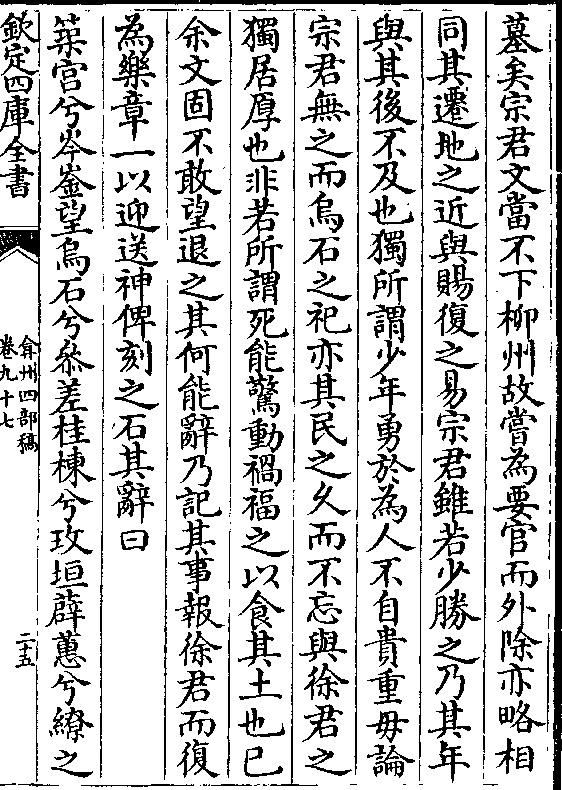 墓矣宗君文當不下柳州故嘗為要官而外除亦略相
同其遷地之近與賜復之易宗君雖若少勝之乃其年
與其後不及也獨所謂少年勇於為人不自貴重毋論
宗君無之而烏石之祀亦其民之久而不忘與徐君之
獨居厚也非若所謂死能驚動禍福之以食其土也已
余文固不敢望退之其何能辭乃記其事報徐君而復
為樂章一以迎送神俾刻之石其辭曰
築宫兮岑崟望烏石兮叅差桂棟兮玫垣薜蕙兮繚之
欽定四庫全書
弇州四部稿
卷九十七
二十五